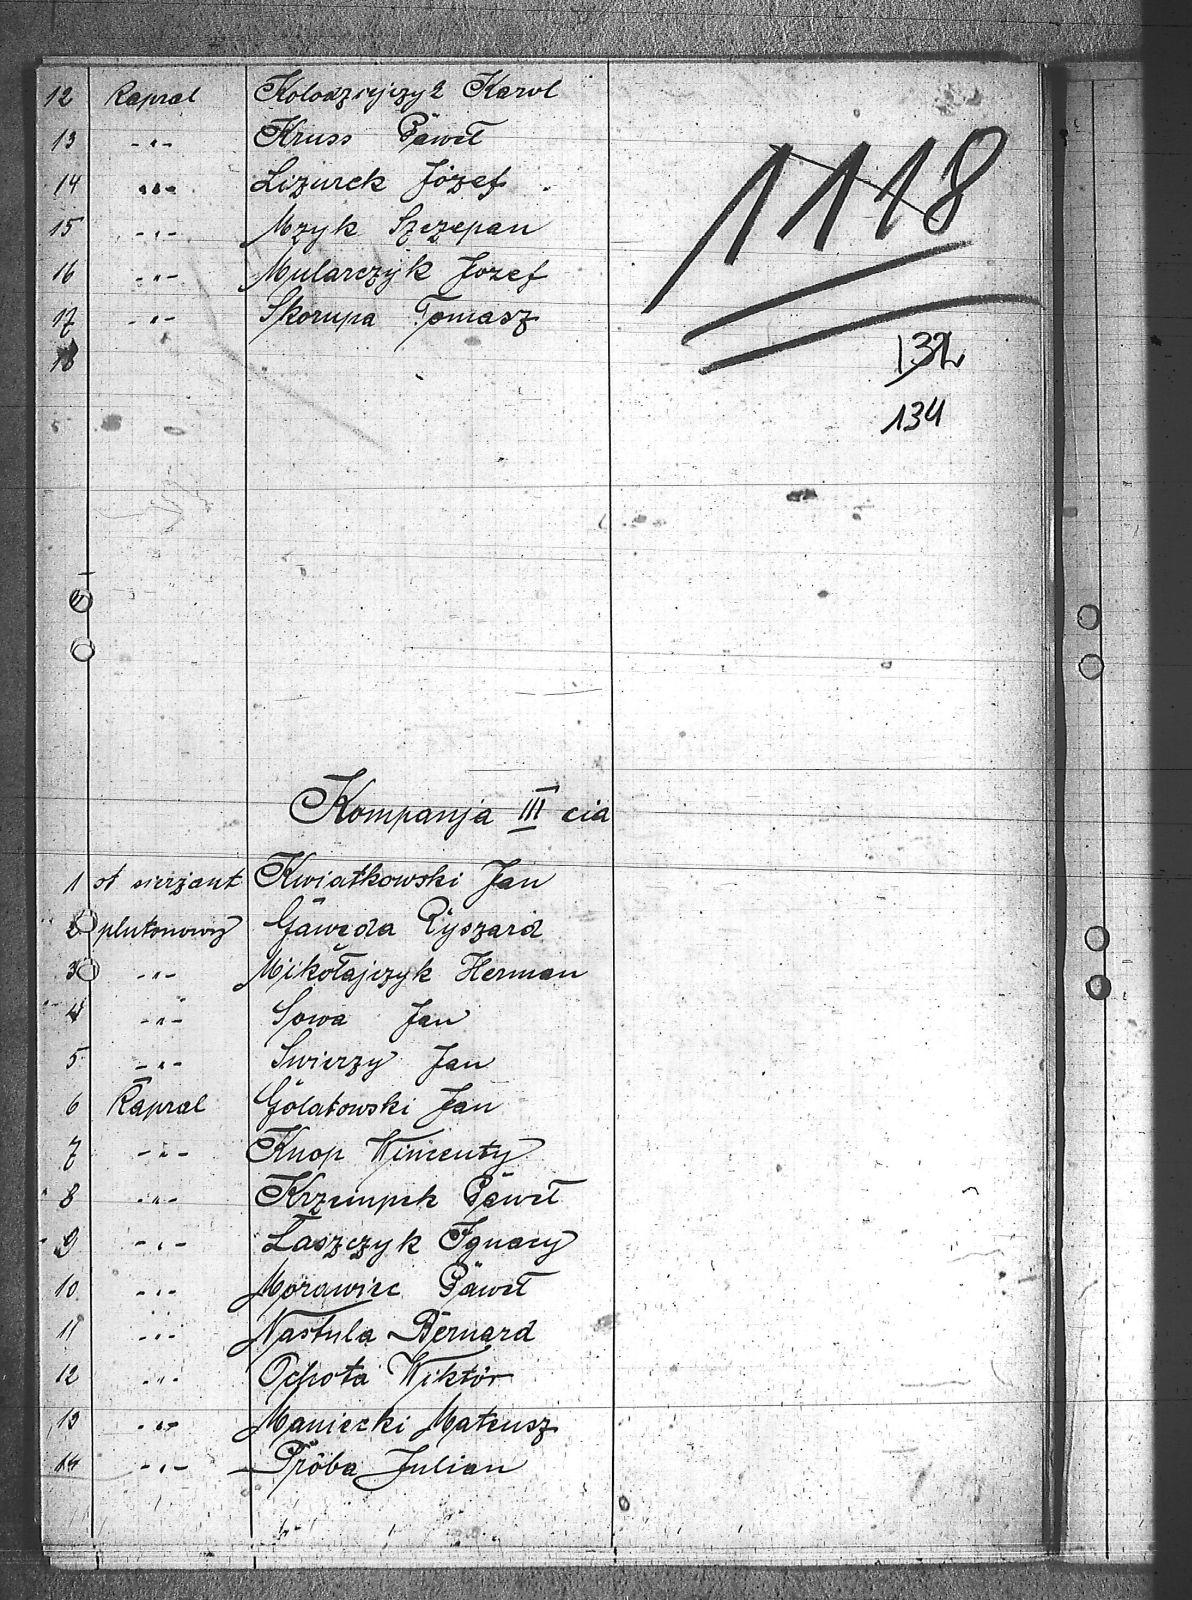 12 Kapral Kolodziejczyk Karol
13 -"- Kruss Paweł
14 -"- Lizurek Józef
15 -"- Mzyk Szczepan
16 -"- Mularczyk Józef
17 -"- Skorupa Tomasz
18
1118
132
134
Kompanja III cia
1 st sierżant Kwiatkowski Jan
2 plutonowy Gawęda Ryszard
3 -"- Mikołajczyk Herman
4 -"- Sowa Jan
5 -"- Swierzy Jan
6 Kapral Golatowski Jan
7 -"- Knop Wincenty
8 -"- Krzempek Paweł
9 -"- Łaszczyk Ignacy
10 -"- Morawiec Paweł
11 -"- Nastula Bernard
12 -"- Ochota Wiktór
13 -"- Maniecki Mateusz
14 -"- Próba Julian